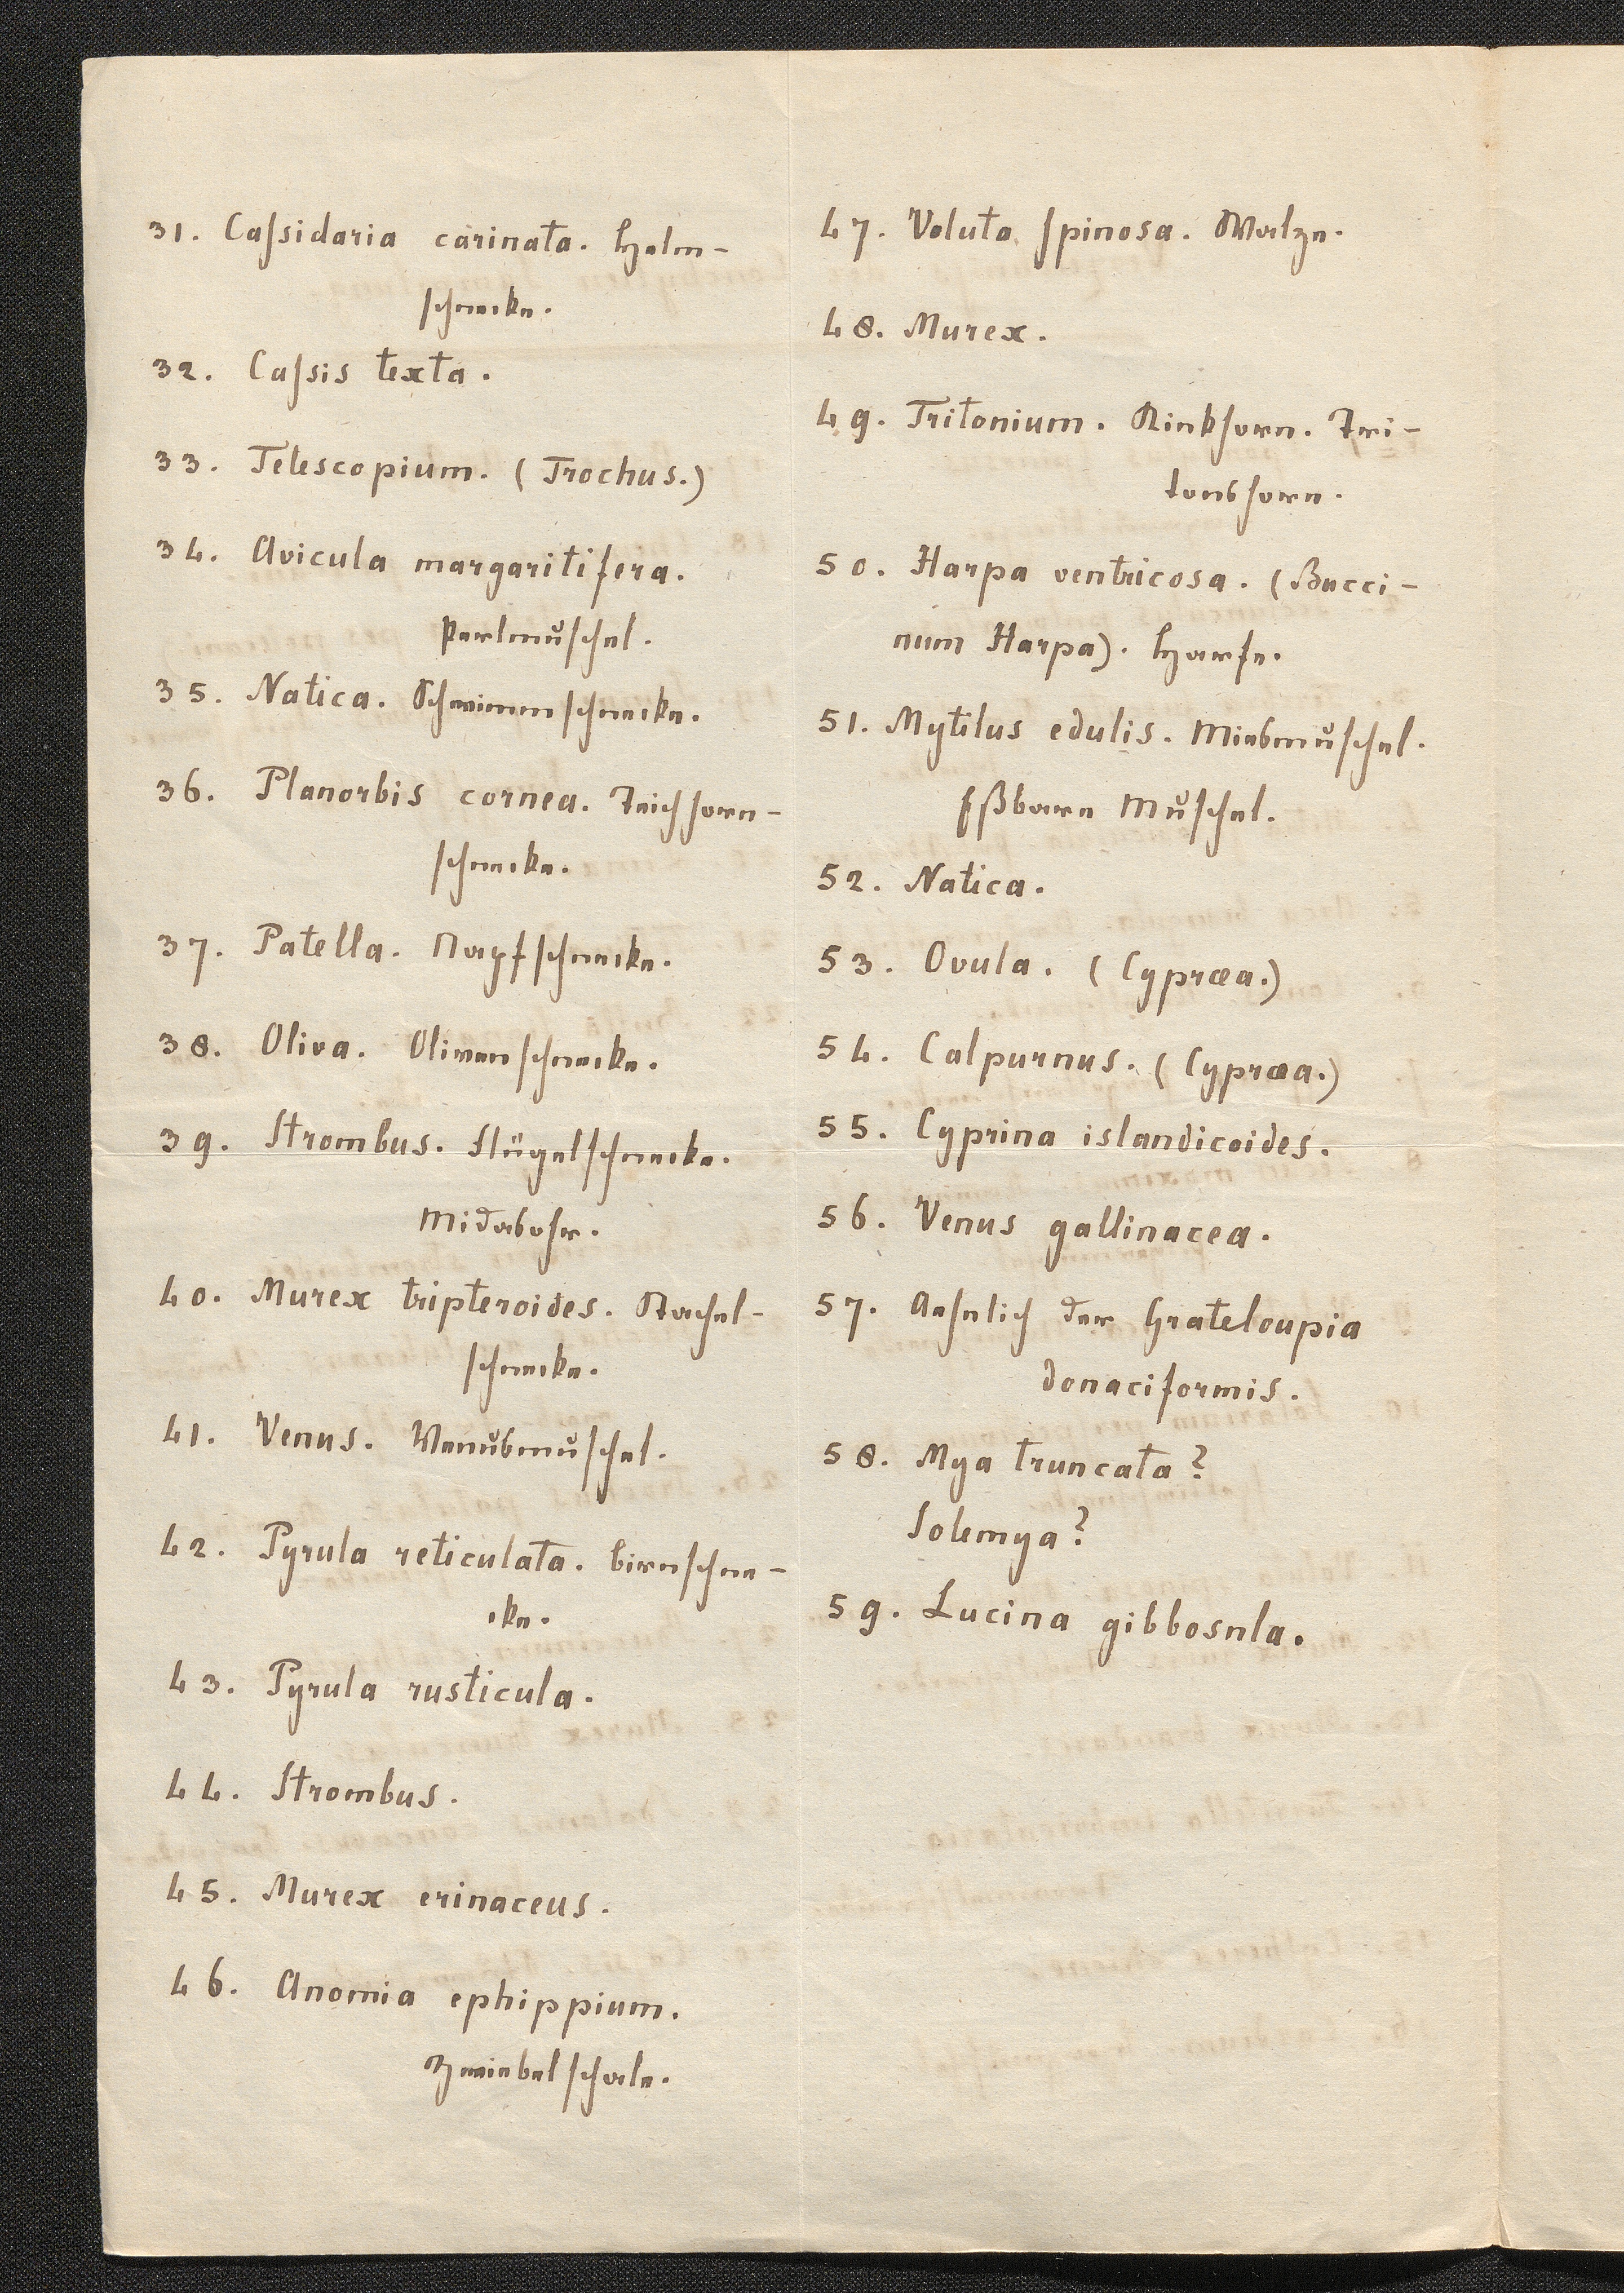 31. Cassidaria carinata. Helm-
schnecke.
32. Cassis texta.
33. Telescopium. (Trochus.)
34. Avicula margaritifera.
Perlmuschel.
35. Natica. Schwimmschnecke.
36. Planorbis cornea. Teichhorn-
schnecke.
37. Patella. Napfschnecke.
38. Oliva. Olivenschnecke.
39. Strombus. Flügelschnecke.
Midasohr.
40. Murex tripteroides. Stachel-
schnecke.
41. Venus. Venusmuschel.
42. Pyrula reticulata. Birnschne-
cke.
43. Pyrula rusticula.
44. Strombus.
45. Murex erinaceus.
46. Anomia ephippium.
Zwiebelschale.
47. Voluta spinosa. Walze.
48. Murex.
49. Tritonium. Kinkhorn. Tri-
tonshorn.
50. Harpa ventricosa. (Bucci-
num Harpa). Harfe.
51. Mytilus edulis. Miesmuschel.
Eßbare Muschel.
52. Natica.
53. Ovula. (Cypræa.)
54. Calpurnus. (Cypræa.)
55. Cyprina islandicoides.
56. Venus gallinacea.
57. Aehnlich der Grateloupia
donaciformis.
58. Mya truncata?
Solemya?
59. Lucina gibbosula.